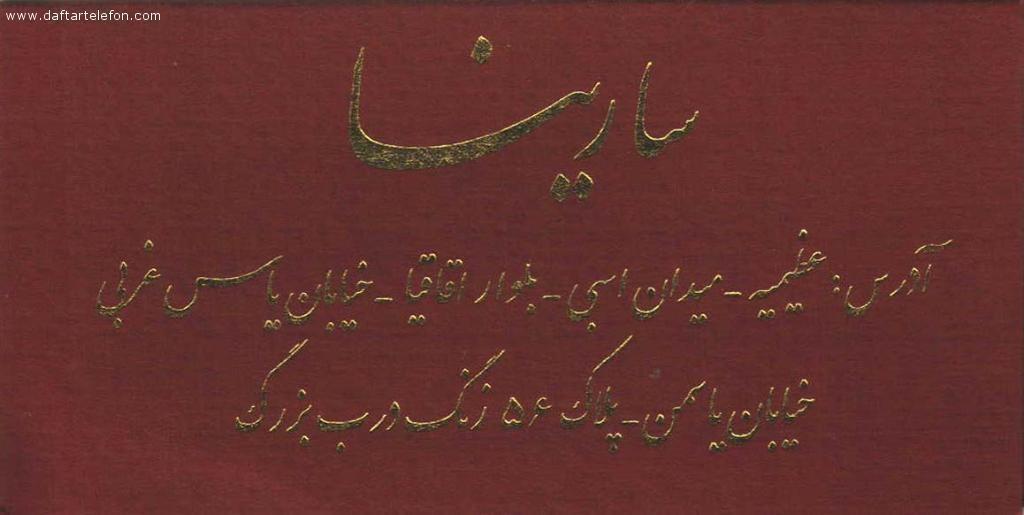 www.daftartelefon.com
سارینا
آدرس: عظیمیه - میدان اسبی - بلوار اقاقیا - خیابان یاس غربی
خیابان یاسمن - پلاک ۵۶ زنگ درب بزرگ